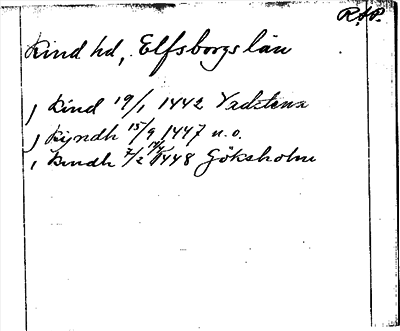 R.A.P.
Kind hd, Elfsborgs län
, Kind 19/1 1442 Vadstena
, Kyndh 15/9 1447 u.o.
, Kindh 7/2 1448 Göksholm